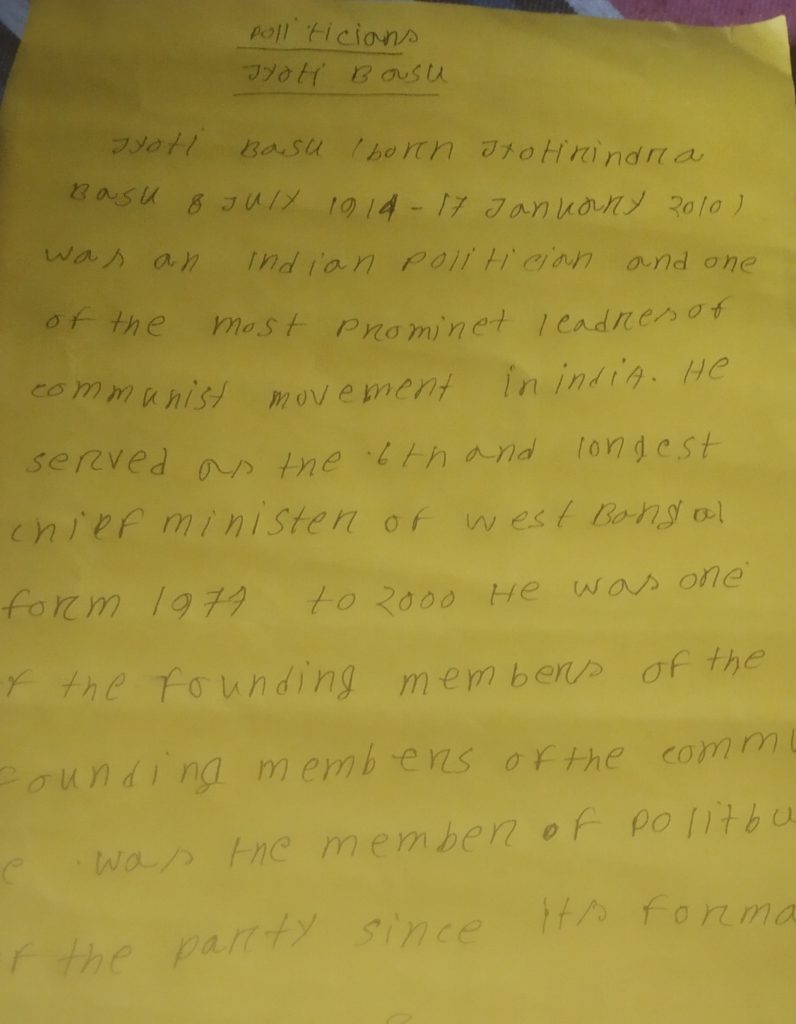 Politicians
Jyoti Basu
Jyoti Basu (born Jyotirindra
Basu 8 July 1914 - 17 January 2010)
was an Indian Politician and one
of the most Prominet leadres of
communist movement in india. He
served as the 6th and longest
chief minister of west Bangal
form 1977 to 2000 He was one
f the founding members of the
founding members of the commu
e was the member of politbu
f the party since its forma